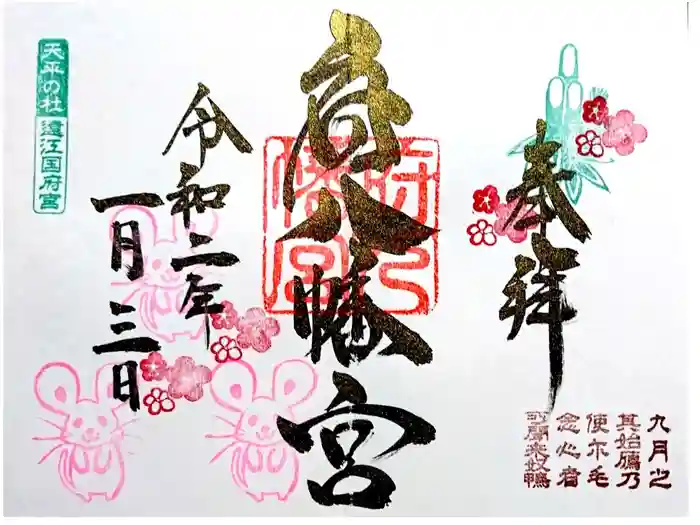 奉拝
府八幡宮
府八
幡宮
令和二年
一月三日
天平の杜
遠江国府宮
九月之
其始鴈乃
使尓毛
念心者
所聞来奴鴨